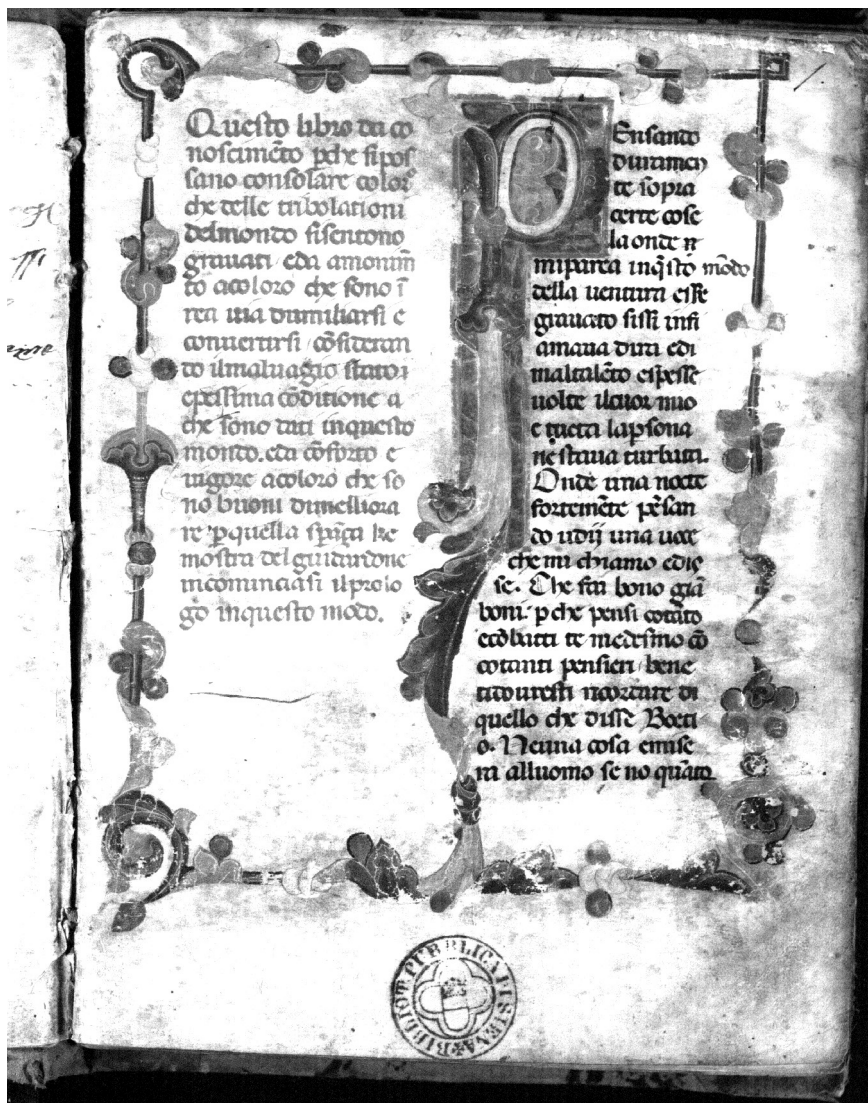 Questo libro da co
noscimēto p̄che sipos
sano consolare coloro
che delle tribolationi
delmondo sisentono
grauati eda amonim̄
to acoloro che sono ī
rea uia dumiliarsi e
conuertirsi cōsideran
do ilmaluagio stato ⁊
epessima cōditione a
che sono dati inquesto
mondo. eda cōforto e
uigore acoloro che so
no buoni dimelliora
re p̄quella sp̄āça ke
mostra del guidardone
incominciasi ilprolo
go inquesto modo.
PEnsando
duramen
te sopra
certe cose
la onde
miparea inq̄sto modo
della uentura esse
grauato sissi infi
amaua dira edi
maltalēto espesse
uolte ilcuor mio
e tucta lap̄sona
nestaua turbata.
Onde una nocte
fortemēte pēsan
do udij una uoce
che mi chiamo edis
se. Che fai bono giā
boni. p̄che pensi cotāto
ecōbatti te medesimo cō
cotanti pensieri bene
tidouresti ricordare di
quello che disse Boeti
o. Neuna cosa emise
ra alluomo se no quāto
BIBLIOT PUBBLICA